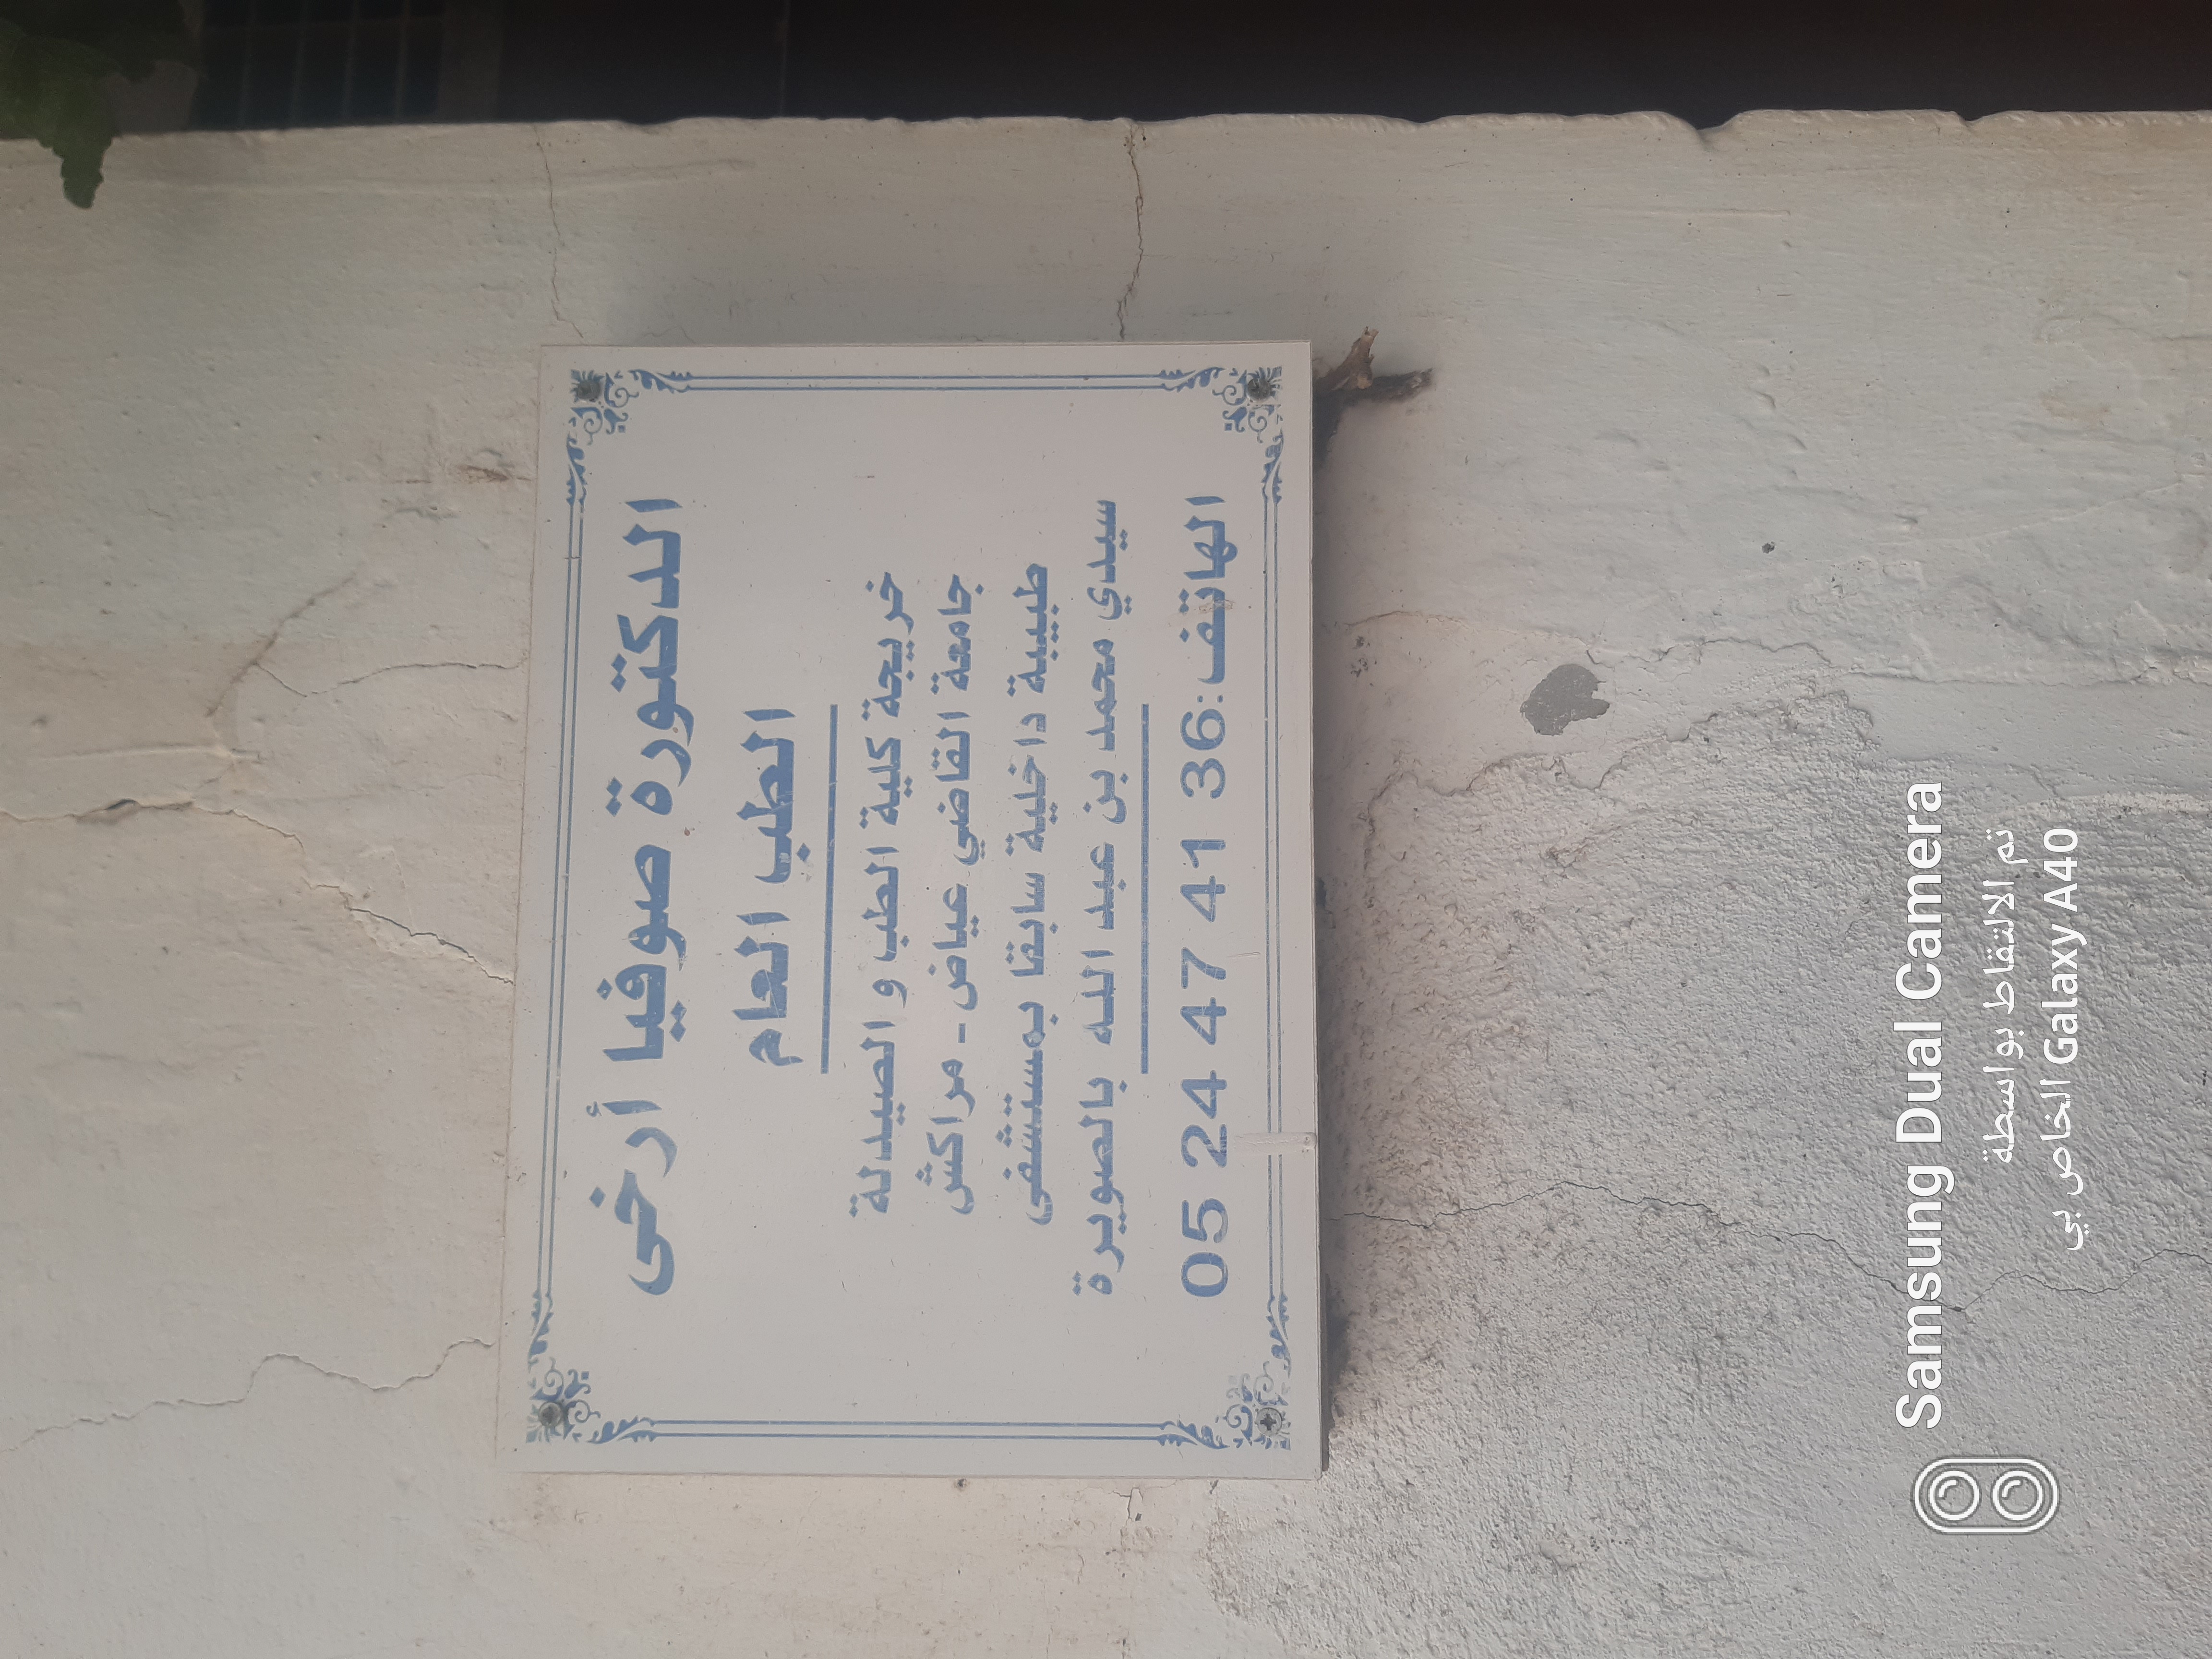 الدكتورة صوفيا أرخى
الطب العام
خريجة كلية الطب و الصيدلة
جامعة القاضي عياض - مراكش
طبيبة داخلية سابقا بمستشفى
سيدي محمد بن عبد الله بالصويرة
الهاتف: 05 24 47 41 36
Samsung Dual Camera
تم الالتقاط بواسطة
Galaxy A40 الخاص بي